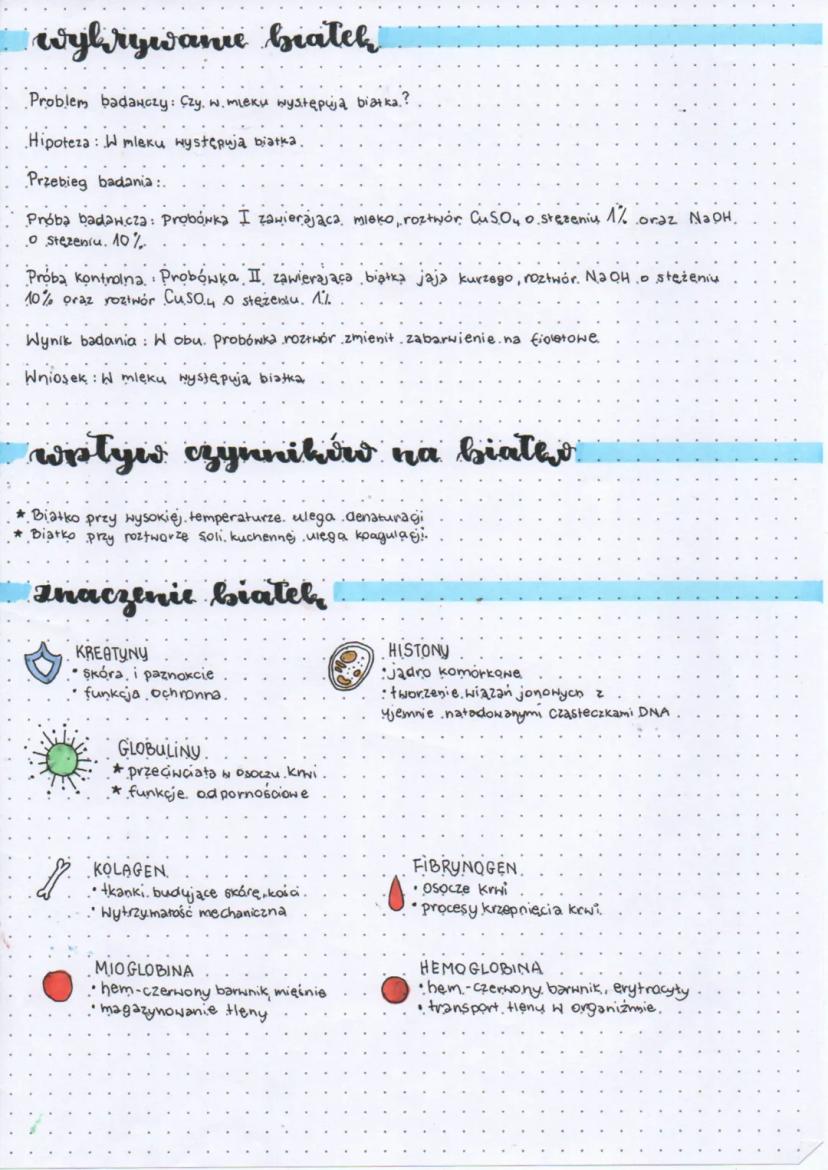 wykrywanie białek
Problem badawczy: Czy w mleku występują białka?
Hipoteza: W mleku występują białka.
Przebieg badania:
Próba badawcza: Probówka I zawierająca mleko, roztwór CuSO4 o stężeniu 1% oraz NaOH
o stężeniu 10%.
Próba kontrolna: Probówka II zawierająca białka jaja kurzego, roztwór NaOH o stężeniu
10% oraz roztwór CuSO4 o stężeniu 1%
Wynik badania: W obu probówka roztwór zmienił zabarwienie na fioletowe
Wniosek: W mleku występują białka
wpływ czynników na białko
* Białko przy wysokiej temperaturze ulega denaturacji
* Białko przy roztworze soli kuchennej ulega koagulacji
znaczenie białek
KREATYNY
• skóra i paznokcie
• funkcja ochronna
HISTONY
• jądro komórkowe
• tworzenie wiązań jonowych z
ujemnie naładowanymi cząsteczkami DNA
GLOBULINY
* przeciwciała w osoczu krwi
* funkcje odpornościowe
KOLAGEN
• tkanki budujące skórę, kości
• wytrzymałość mechaniczna
FIBRYNOGEN
• osocze krwi
• procesy krzepnięcia krwi
MIOGLOBINA
• hem-czerwony barwnik, mięśnie
• magazynowanie tlenu
HEMOGLOBINA
• hem-czerwony barwnik, erytrocyty
• transport tlenu w organiźmie